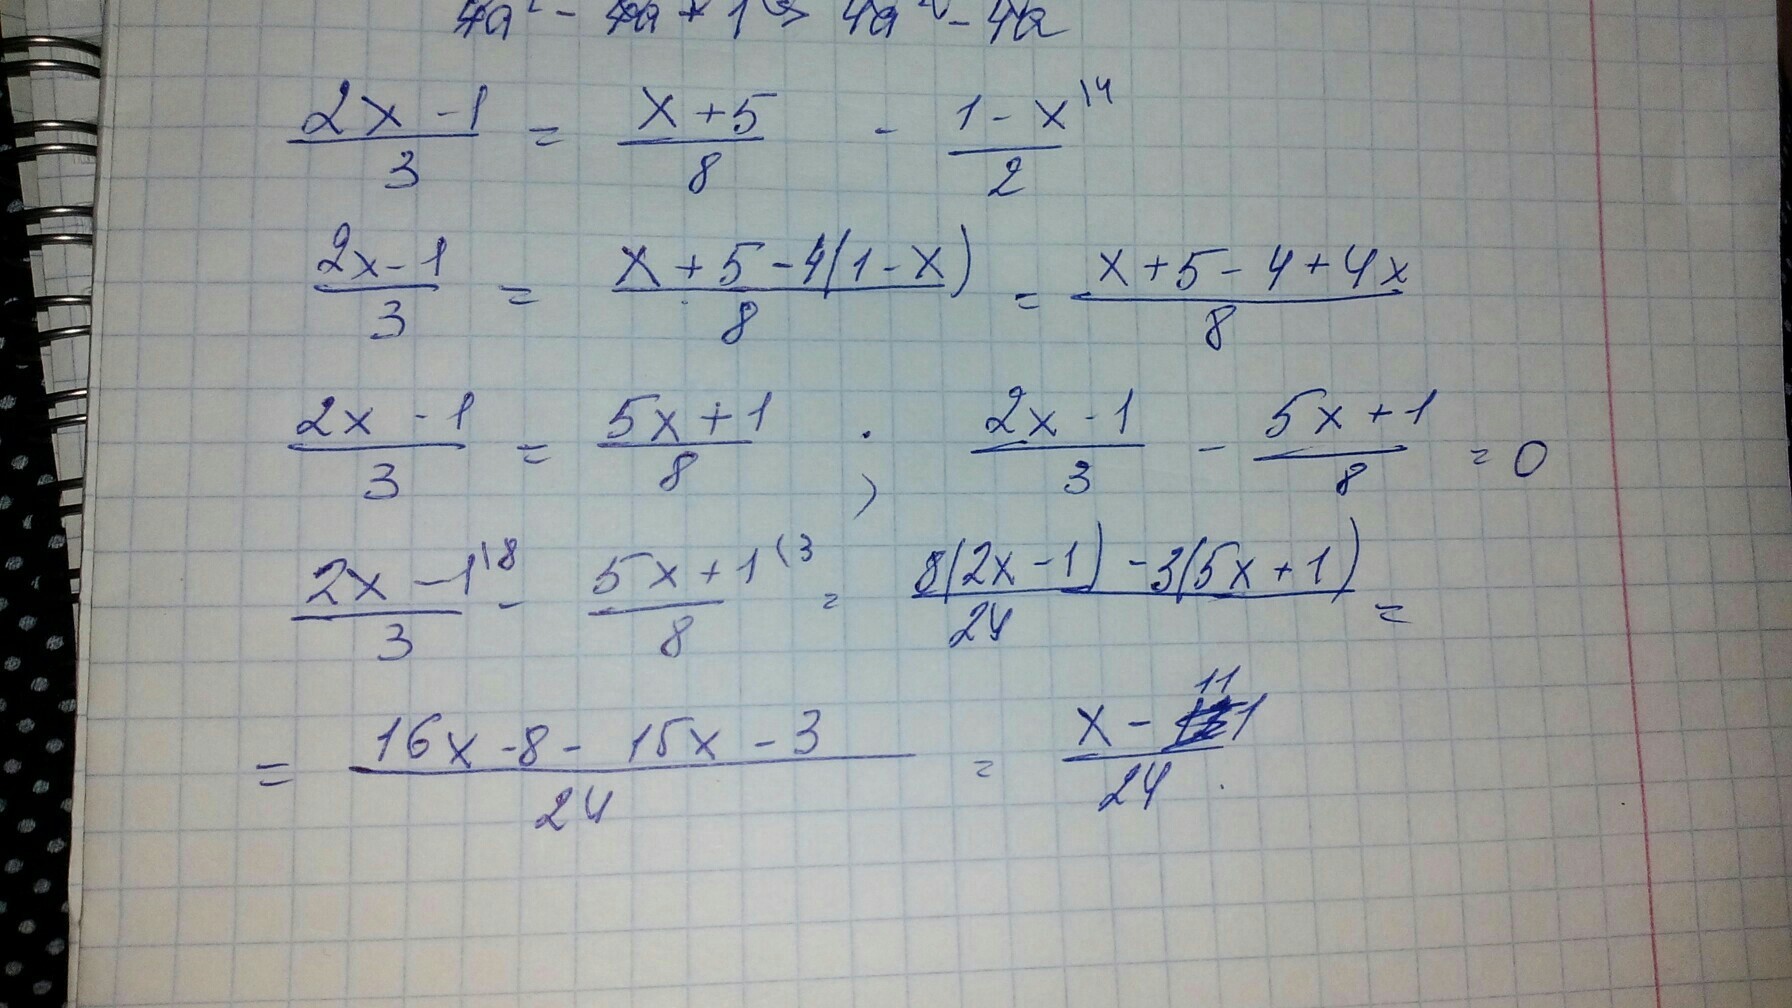 4a² - 4a + 1 > 4a² - 4a
(2x - 1)/3 = (x + 5)/8 - (1 - x)/2 \4
(2x - 1)/3 = (x + 5 - 4(1 - x))/8 = (x + 5 - 4 + 4x)/8
(2x - 1)/3 = (5x + 1)/8 ; (2x - 1)/3 - (5x + 1)/8 = 0
(2x - 1)/3 \8 - (5x + 1)/8 \3 = (8(2x - 1) - 3(5x + 1))/24 =
= (16x - 8 - 15x - 3)/24 = (x - 11)/24